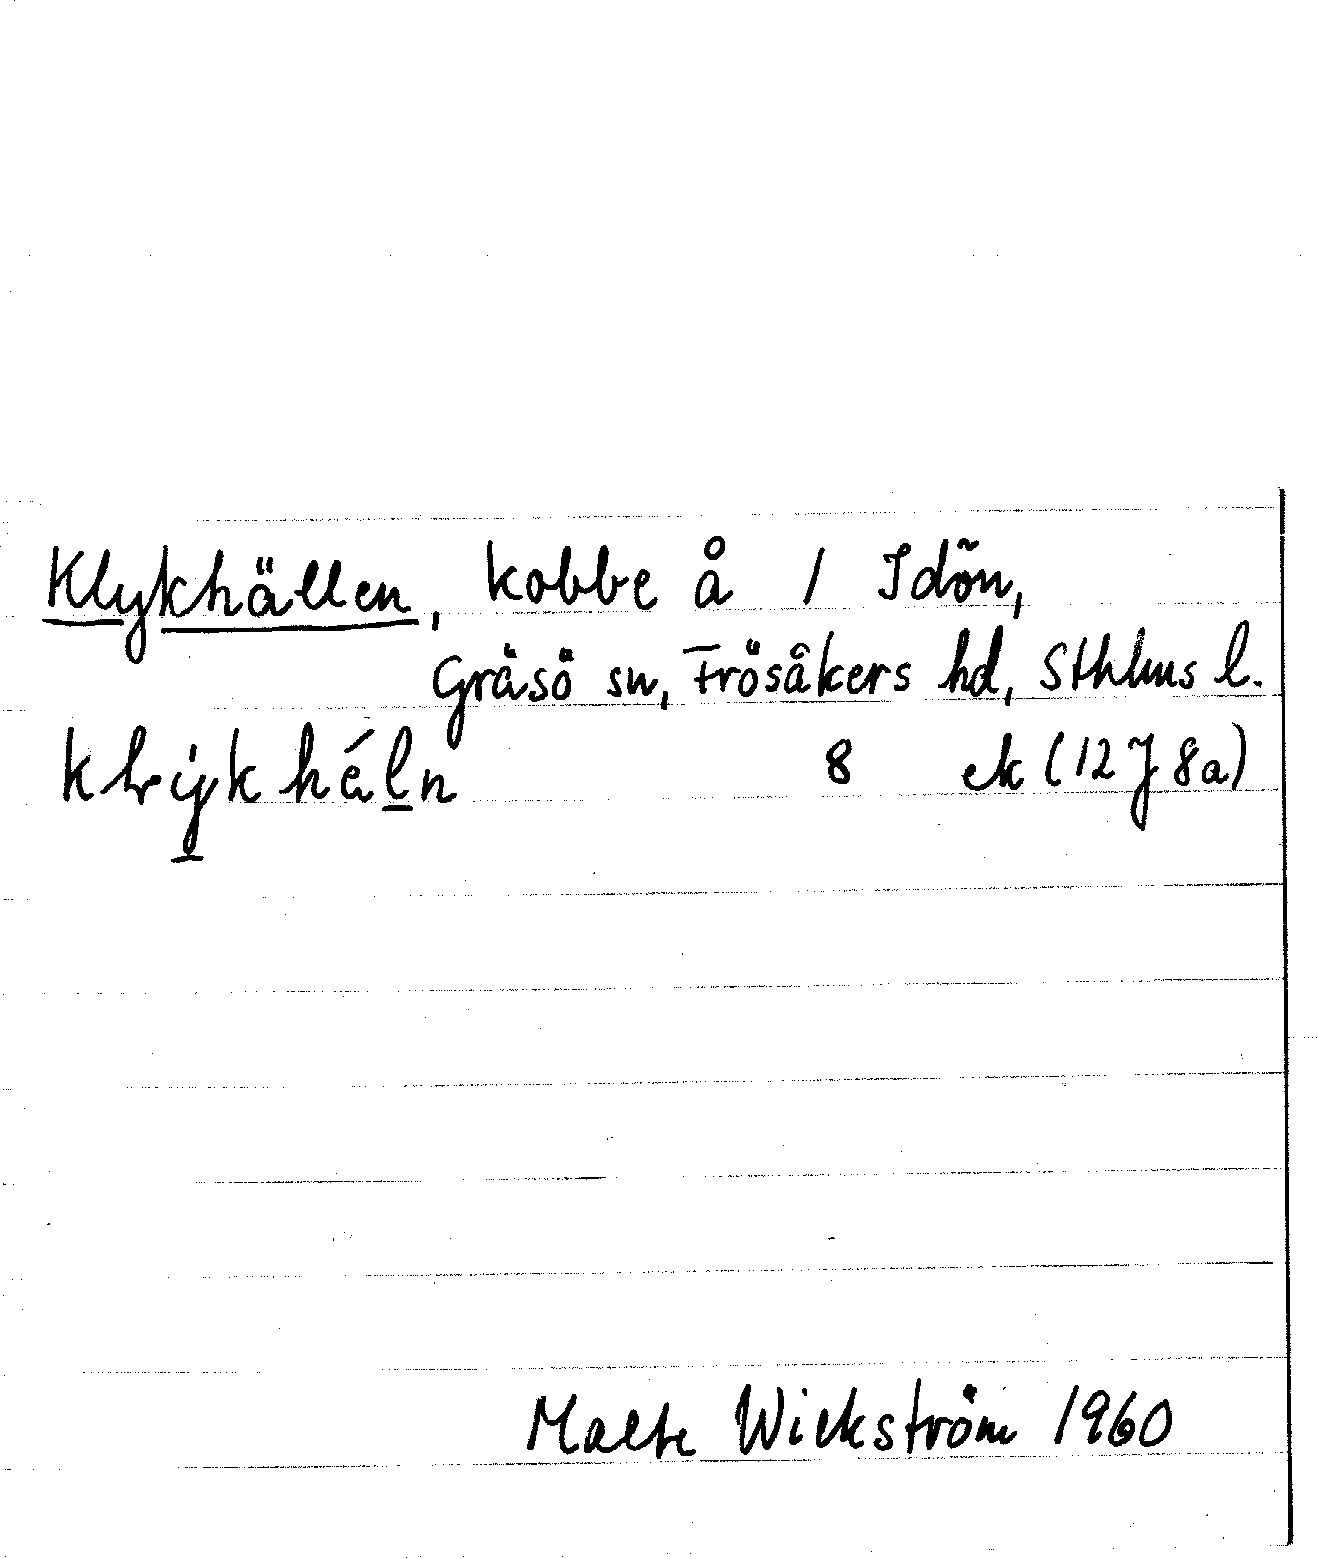 Klykhällen, kobbe å 1 Idön,
Gräsö sn, Frösåkers hd, Sthlms l.
klỳkhéln 8 ek (12 J 8a)
Malte Wickström 1960